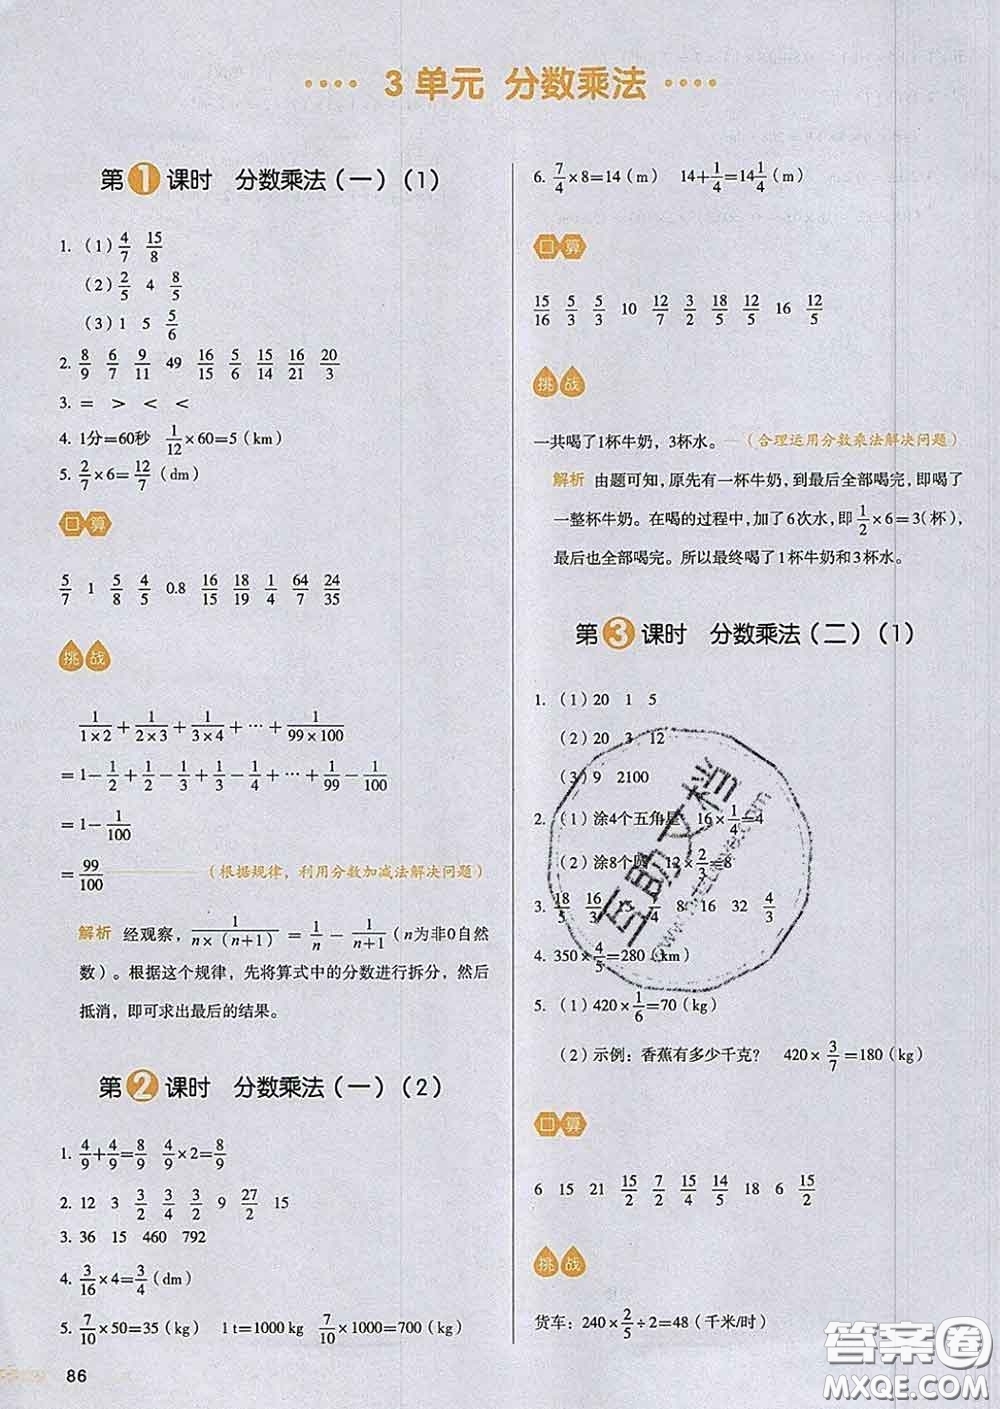 3 单元 分数乘法
第1课时 分数乘法（一）（1）
1. （1）4/7 15/8
（2）2/5 4 8/5
（3）1 5 5/6
2. 8/9 6/7 9/11 49 16/15 5/6 15/14 16/21 20/3
3. = > < <
4. 1分=60秒 1/12×60=5（km）
5. 2/7×6=12/7（dm）
口算
5/7 1 5/8 4/5 0.8 16/15 18/19 1/4 64/7 24/35
挑战
1/(1×2)+1/(2×3)+1/(3×4)+…+1/(99×100)
=1-1/2+1/2-1/3+1/3-1/4+…+1/99-1/100
=1-1/100
=99/100 （根据规律，利用分数加减法解决问题）
解析 经观察，1/(n×(n+1))=1/n-1/(n+1)（n为非0自然
数）。根据这个规律，先将算式中的分数进行拆分，然后
抵消，即可求出最后的结果。
第2课时 分数乘法（一）（2）
1. 4/9+4/9=8/9 4/9×2=8/9
2. 12 3 3/2 3/2 3/2 9 27/2 15
3. 36 15 460 792
4. 3/16×4=3/4（dm）
5. 7/10×50=35（kg） 1 t=1000 kg 7/10×1000=700（kg）
86
6. 7/4×8=14（m） 14+1/4=14 1/4（m）
口算
15/16 5/3 5/3 10 12/7 3/2 18/5 12/5 16 12/5
挑战
一共喝了1杯牛奶，3杯水。（合理运用分数乘法解决问题）
解析 由题可知，原先有一杯牛奶，到最后全部喝完，即喝了
一整杯牛奶。在喝的过程中，加了6次水，即1/2×6=3（杯），
最后也全部喝完。所以最终喝了1杯牛奶和3杯水。
第3课时 分数乘法（二）（1）
1. （1）20 1 5
（2）20 3 12
（3）9 2100
2. （1）涂4个五角星 16×1/4=4
（2）涂8个圆 12×2/3=8
3. 18/5 16/3 8 16 32 4/3
4. 350×4/5=280（km）
5. （1）420×1/6=70（kg）
（2）示例：香蕉有多少千克？ 420×3/7=180（kg）
口算
6 15 21 15/2 7/2 15/4 14/5 18 6 15/2
挑战
货车：240×2/5÷2=48（千米/时）
互助文档
答案圈
MXQE.COM